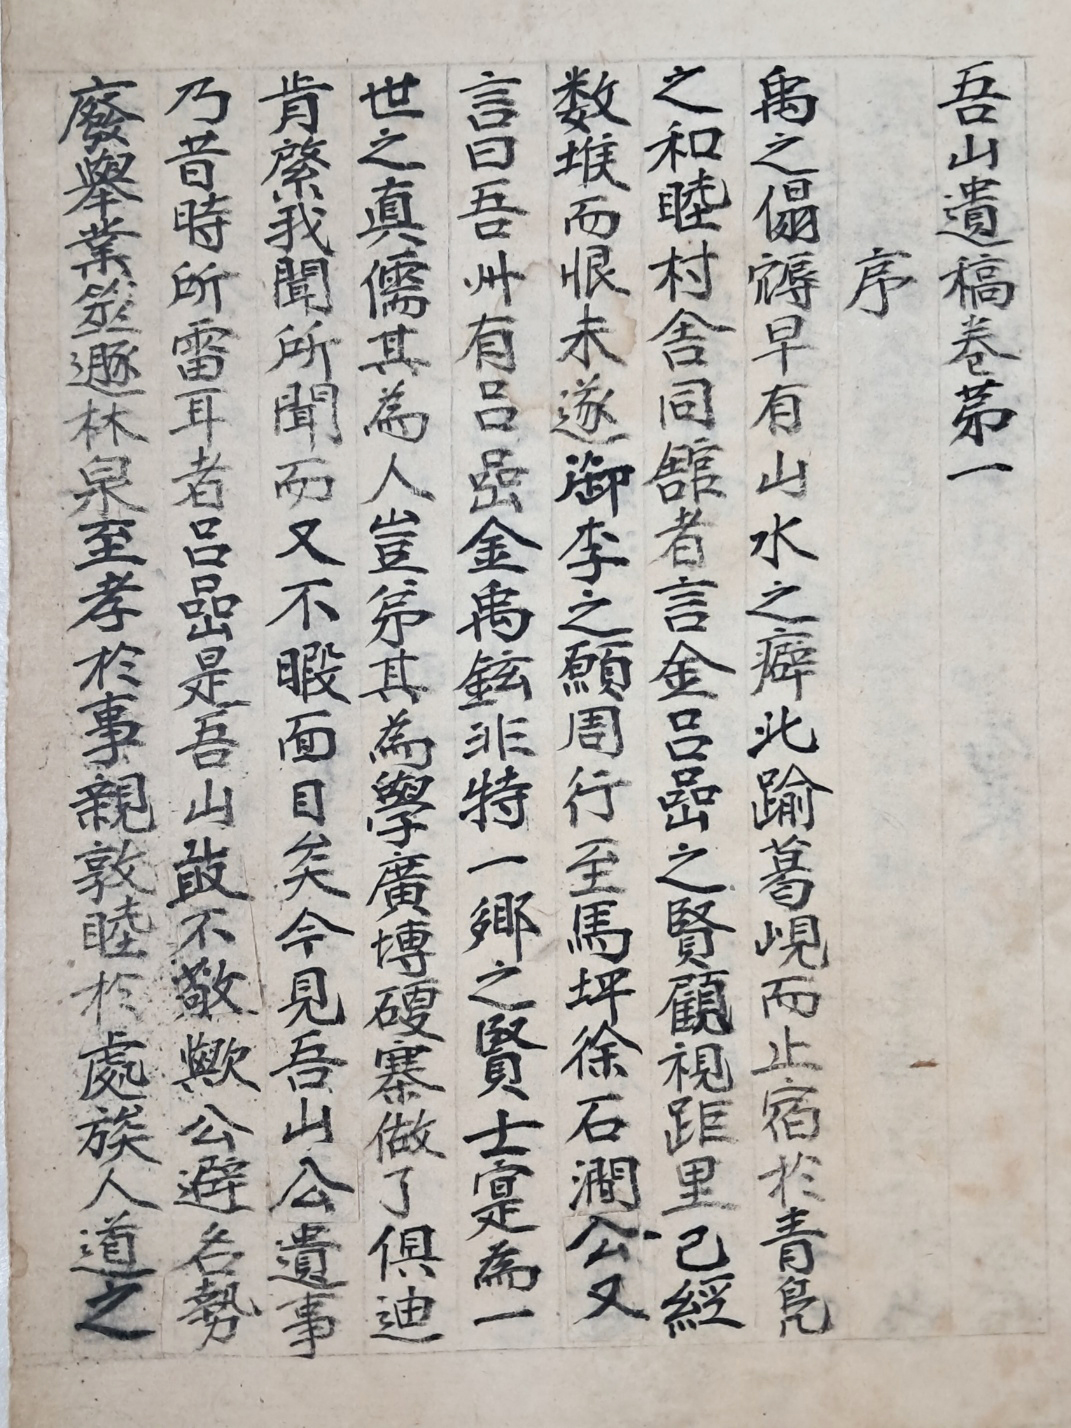 吾山遺稿卷苐一
序
禹之傝𥛑早有山水之癖北踰葛峴而止宿於青鳧
之和睦村舍同舘者言金呂嵒之賢顧視距里已經
数堠而恨未遂御李之願周行至馬坪徐石澗公又
言曰吾州有呂嵒金禹鉉非特一鄉之賢士寔為一
世之真儒其為人豈弟其為學廣博硬寨做了俱迪
肯綮我聞所聞而又不暇面目矣今見吾山公遺事
乃昔時所雷耳者呂嵒是吾山敢不敬歟公避名勢
廢舉業築遯林泉至孝於事親敦睦於處族人道之